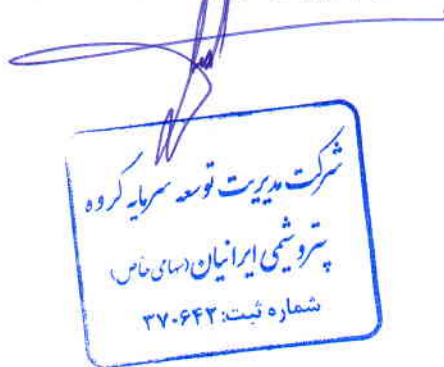 شرکت مدیریت توسعه سرمایه گروه
پتروشیمی ایرانیان (سهامی خاص)
شماره ثبت: ۳۷۰۶۴۳